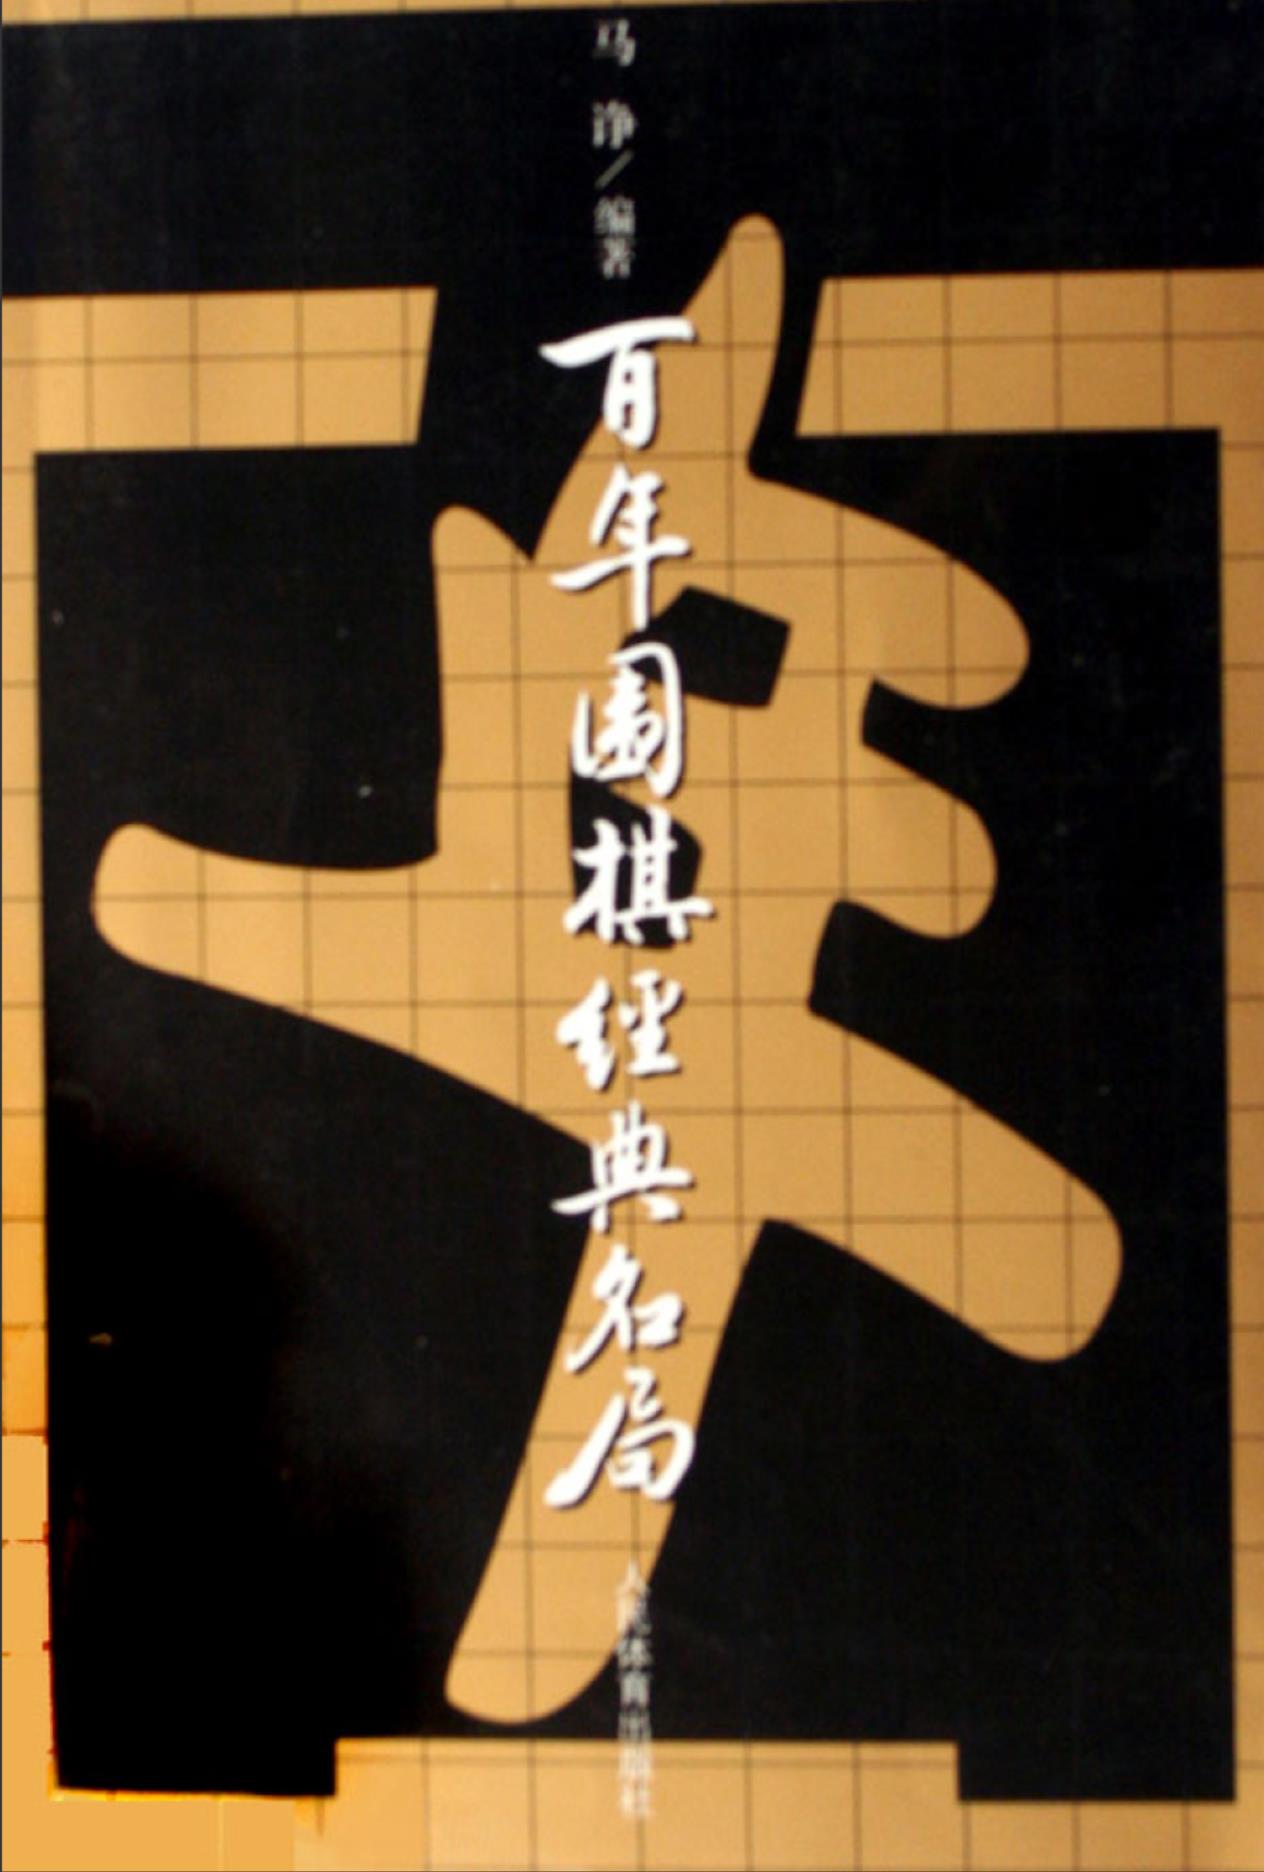 马 诤／编著
百年围棋经典名局
人民体育出版社